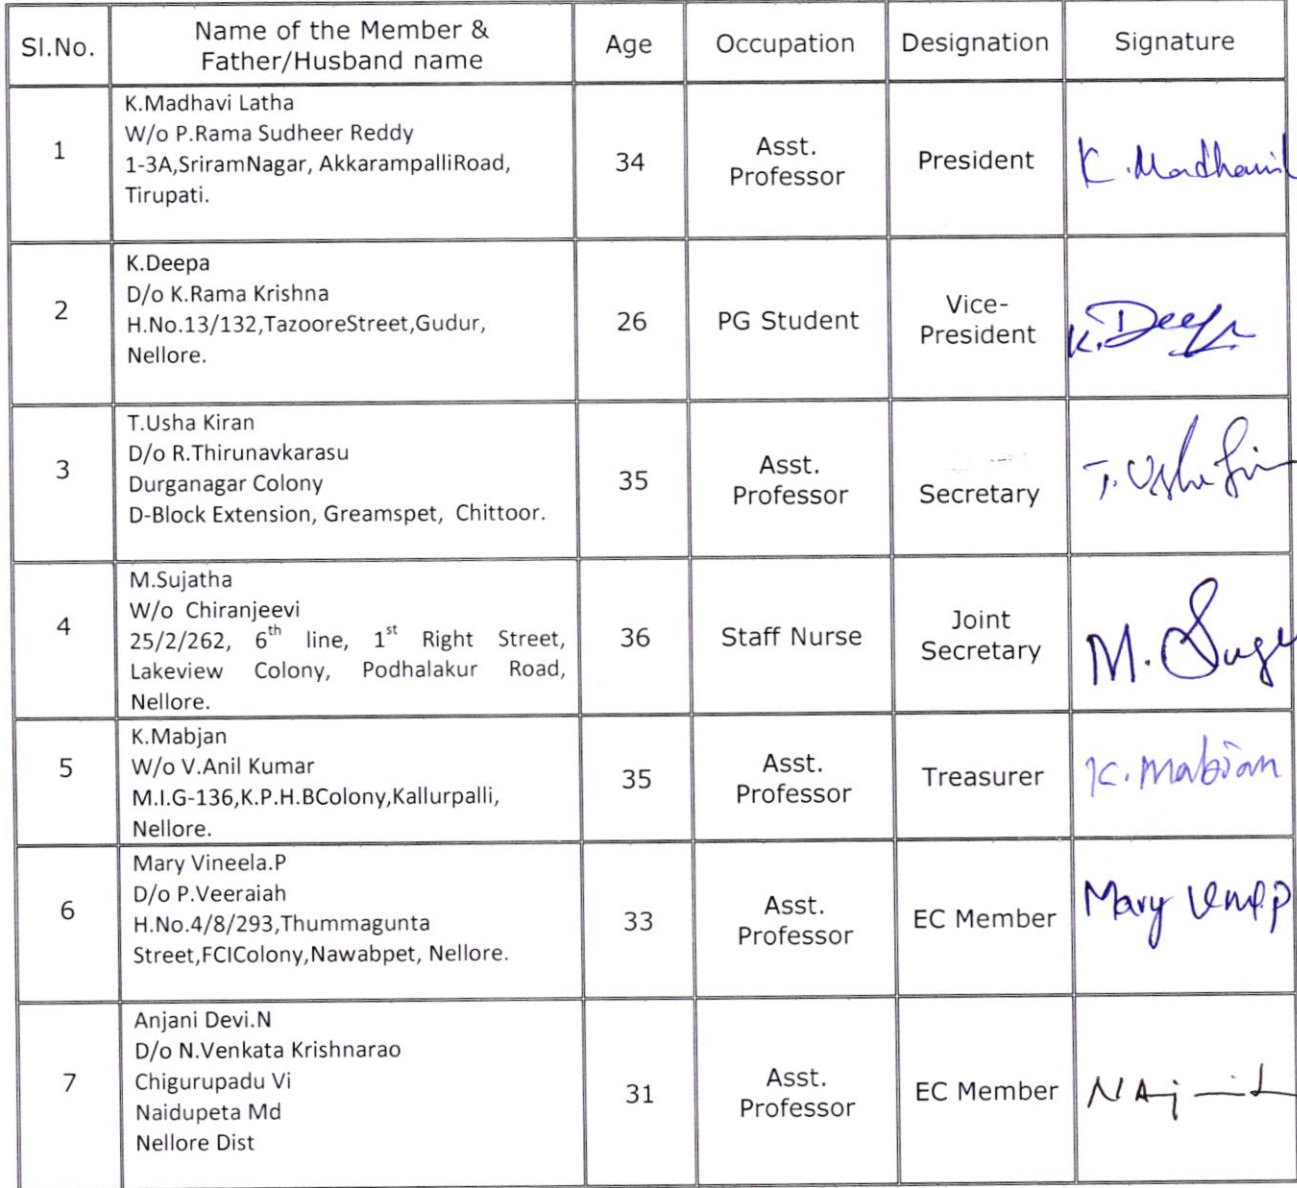 Sl.No.
Name of the Member &
Father/Husband name
Age
Occupation
Designation
Signature
1
K.Madhavi Latha
W/o P.Rama Sudheer Reddy
1-3A,SriramNagar, AkkarampalliRoad,
Tirupati.
34
Asst.
Professor
President
K. Madhavi
2
K.Deepa
D/o K.Rama Krishna
H.No.13/132,TazooreStreet,Gudur,
Nellore.
26
PG Student
Vice-
President
K. Deepa
3
T.Usha Kiran
D/o R.Thirunavkarasu
Durganagar Colony
D-Block Extension, Greamspet, Chittoor.
35
Asst.
Professor
Secretary
T. Usha
4
M.Sujatha
W/o Chiranjeevi
25/2/262, 6th line, 1st Right Street,
Lakeview Colony, Podhalakur Road,
Nellore.
36
Staff Nurse
Joint
Secretary
M.
5
K.Mabjan
W/o V.Anil Kumar
M.I.G-136,K.P.H.BColony,Kallurpalli,
Nellore.
35
Asst.
Professor
Treasurer
K. Mabjan
6
Mary Vineela.P
D/o P.Veeraiah
H.No.4/8/293,Thummagunta
Street,FCIColony,Nawabpet, Nellore.
33
Asst.
Professor
EC Member
Mary
7
Anjani Devi.N
D/o N.Venkata Krishnarao
Chigurupadu Vi
Naidupeta Md
Nellore Dist
31
Asst.
Professor
EC Member